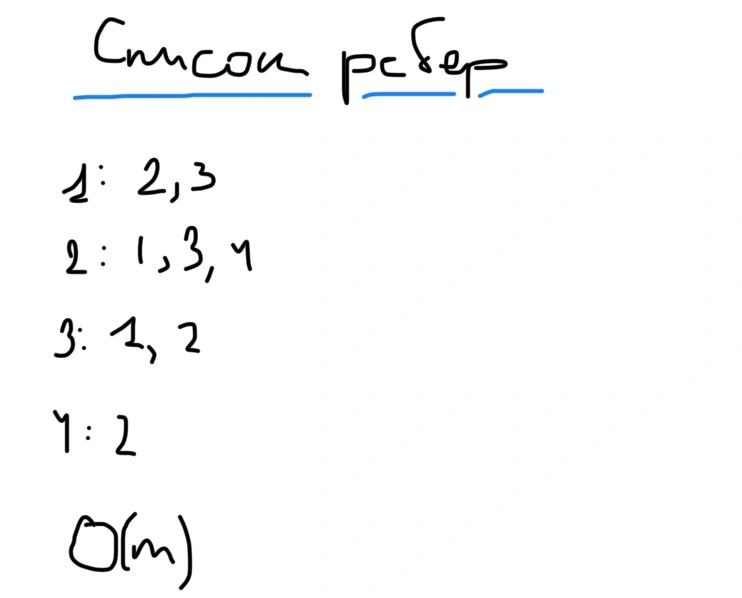 Список ребер
1: 2, 3
2: 1, 3, 4
3: 1, 2
4: 2
O(m)